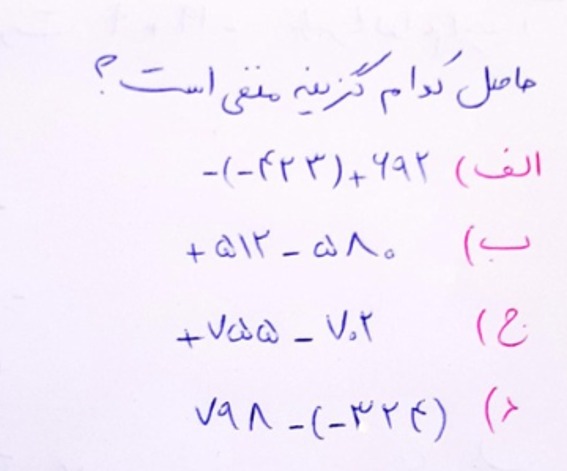 حاصل کدام گزینه منفی است؟
الف) -(-۴۲۳)+۶۹۲
ب) +۵۱۲-۵۸۰
ج) +۷۵۵-۷۰۲
د) ۷۹۸-(-۳۲۴)